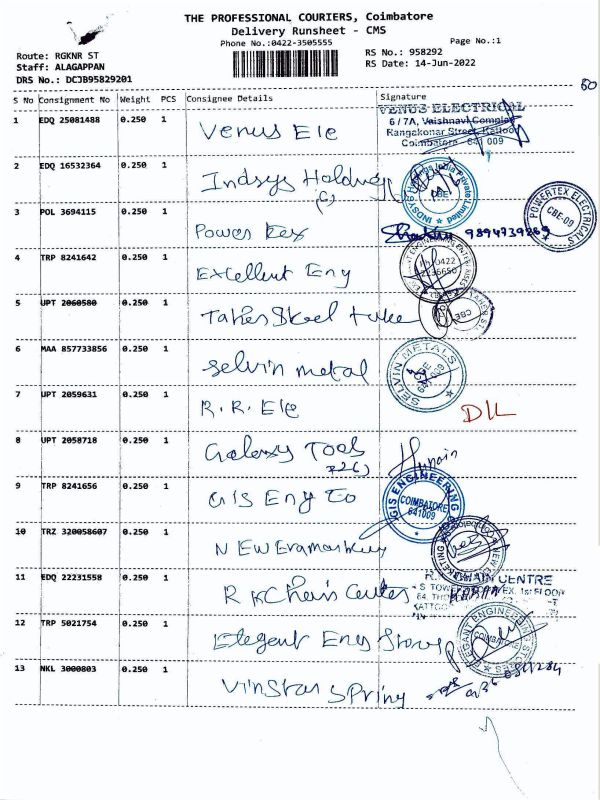 THE PROFESSIONAL COURIERS, Coimbatore
Delivery Runsheet - CMS
Phone No.:0422-3505555
Page No.:1
Route: RGKNR ST
Staff: ALAGAPPAN
DRS No.: DCJB95829201
RS No.: 958292
RS Date: 14-Jun-2022
60
S No Consignment No Weight PCS Consignee Details Signature
1 EDQ 25081488 0.250 1 Venus Ele
VENUS ELECTRICAL
6 / 7A, Vaishnavi Complex
Rangakonar Street, Kattoor
Coimbatore - 641 009
2 EDQ 16532364 0.250 1 Indsys Holdings
CBE
3 POL 3694115 0.250 1 Power tex 9894939269
POWERTEX ELECTRICALS
CBE-09
4 TRP 8241642 0.250 1 Excellent Eny
5 UPT 2060580 0.250 1 Taher Steel tube
CBE
6 MAA 857733856 0.250 1 Selvin metal
SELVIN METALS
7 UPT 2059631 0.250 1 R.R. Ele D/L
8 UPT 2058718 0.250 1 Galaxy Tools
9 TRP 8241656 0.250 1 GIS Eny Co
GIS ENGINEERING
COIMBATORE
641009
10 TRZ 320058607 0.250 1 NEW
11 EDQ 22231558 0.250 1 R K Chain Center
CHAIN CENTRE
1st FLOOR
12 TRP 5021754 0.250 1 Elegent Eny Stores
ELEGANT ENGINEERING STORES
COIMBATORE
13 NKL 3000803 0.250 1 Vinstar Spring